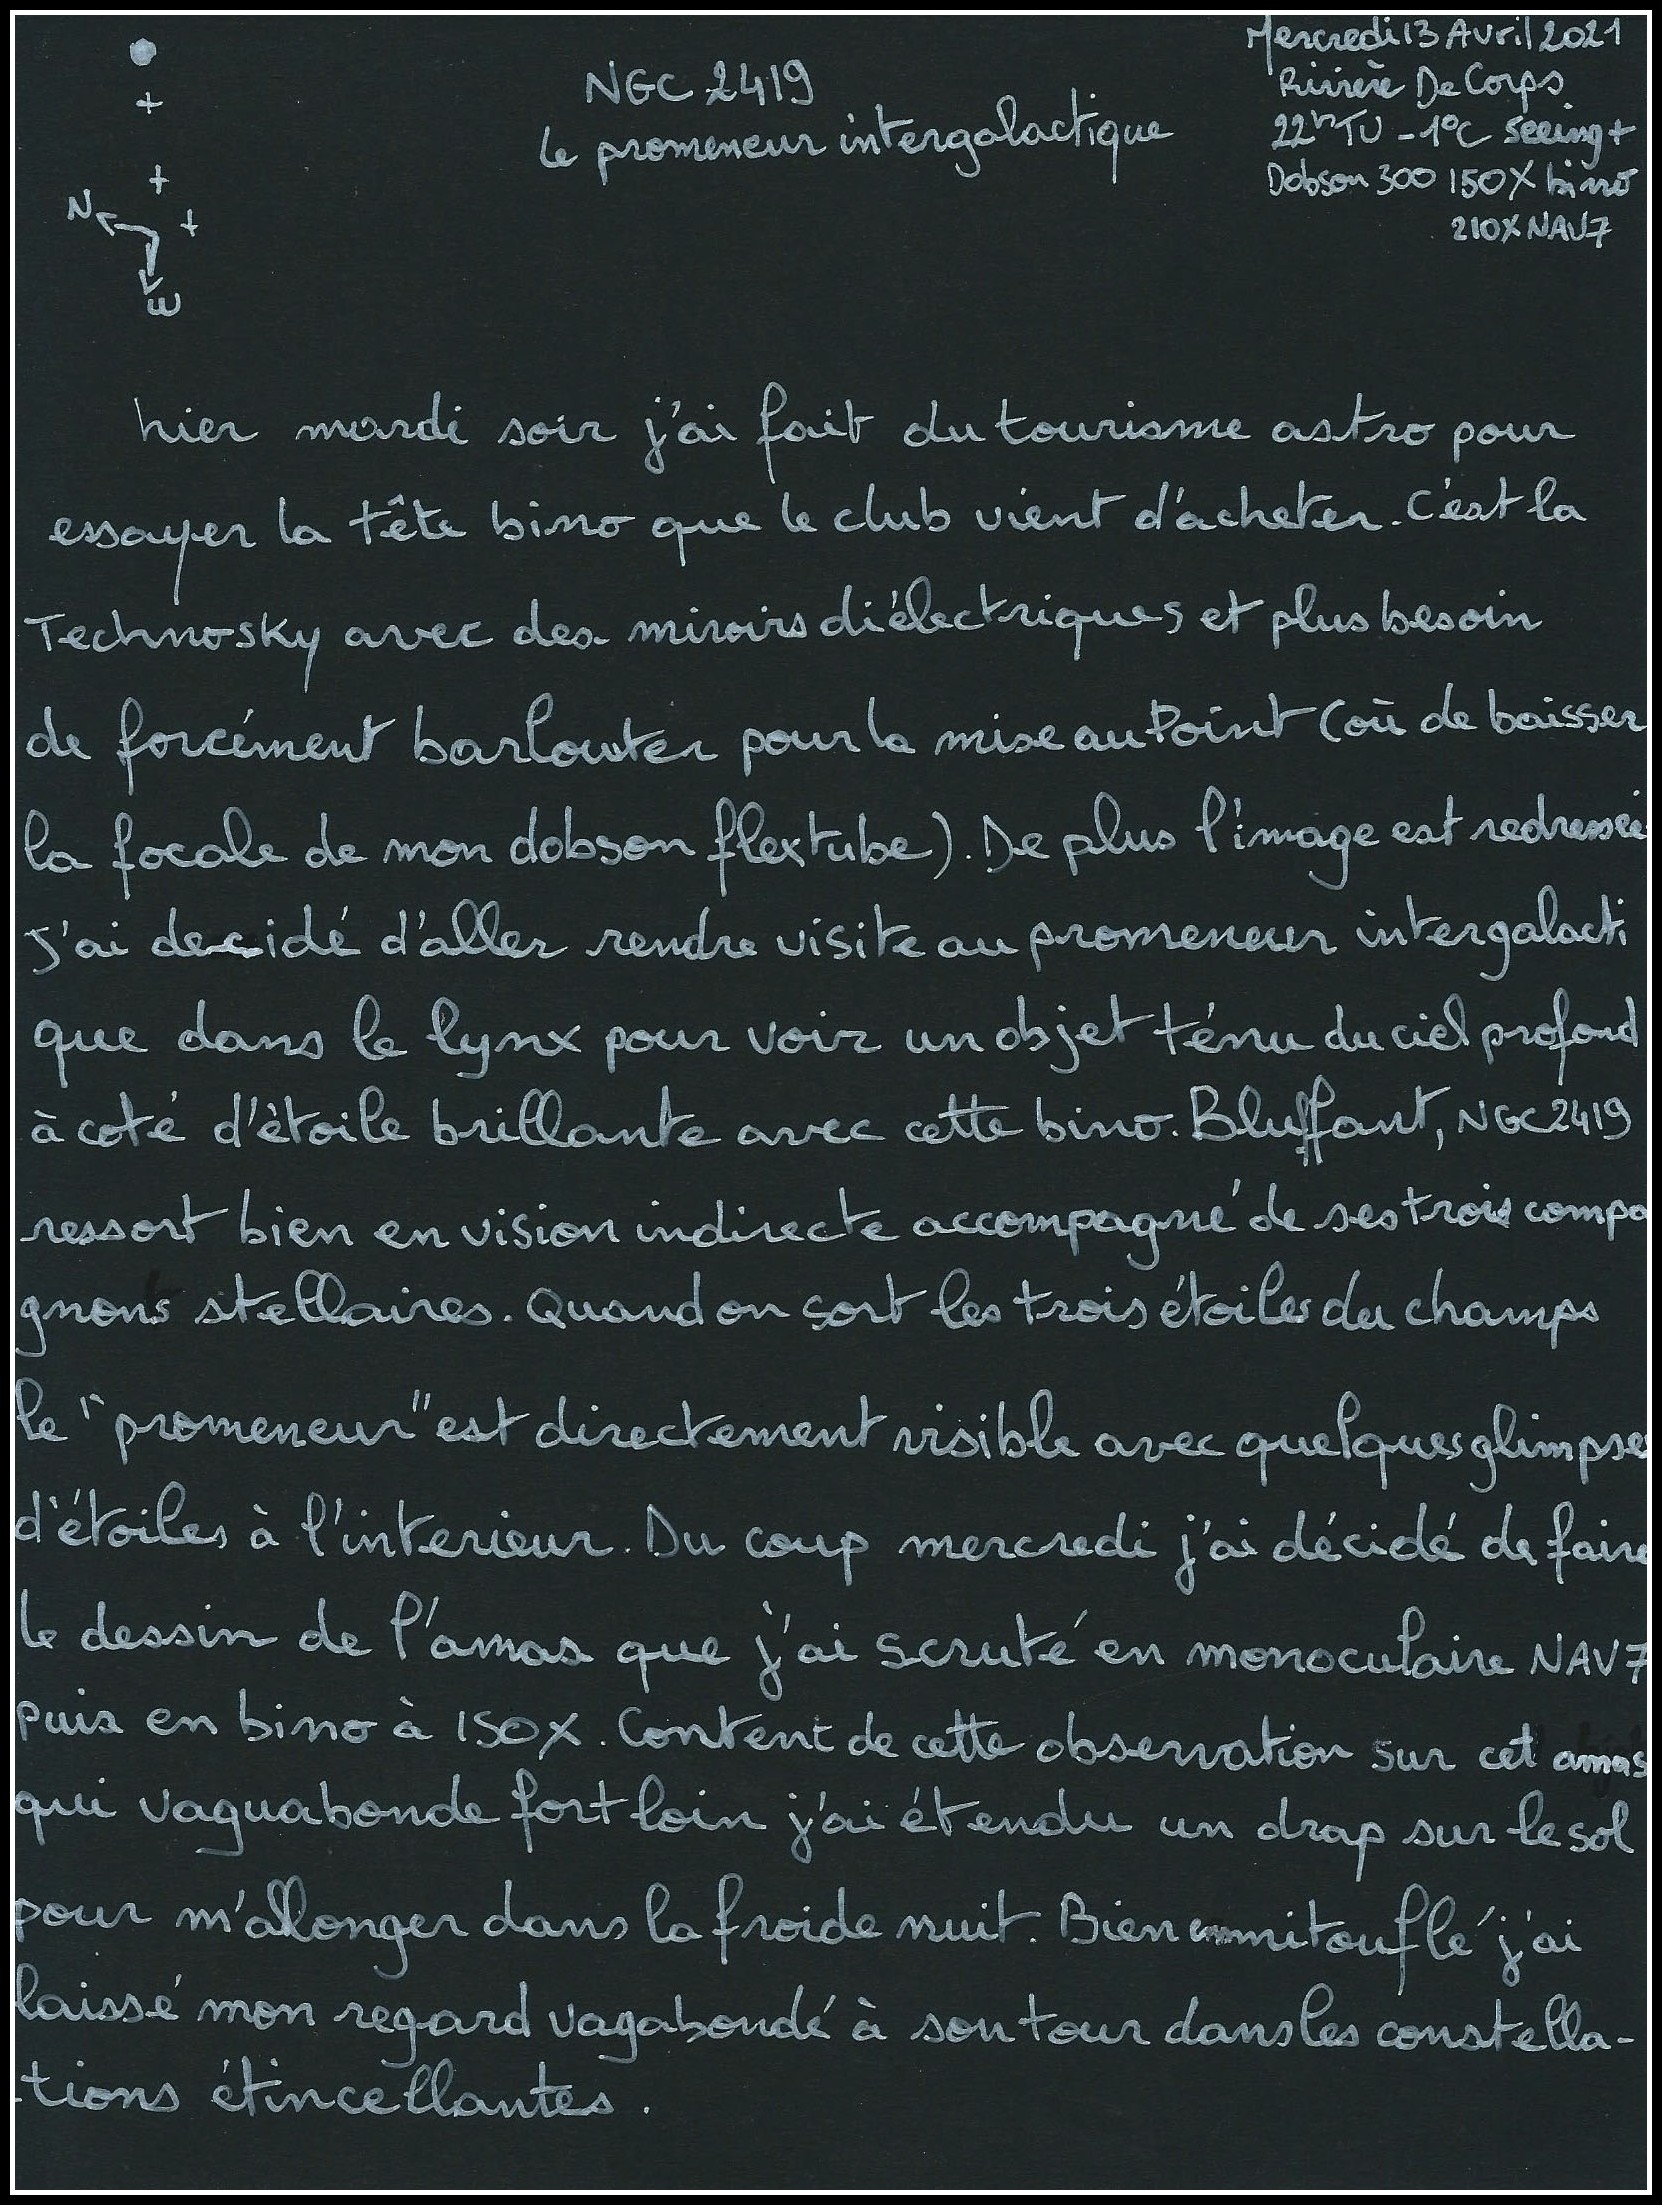 Mercredi 13 Avril 2021
Rivière De Corps
22h TU -1°C Seeing+
Dobson 300 150X bino
210X NAV7
NGC 2419
Le promeneur intergalactique
N
E
hier mardi soir j'ai fait du tourisme astro pour
essayer la tête bino que le club vient d'acheter. C'est la
Technosky avec des miroirs diélectriques et plus besoin
de forcément barlowter pour la mise au Point (où de baisser
la focale de mon dobson flextube). De plus l'image est redressée
J'ai decidé d'aller rendre visite au promeneur intergalacti
que dans le lynx pour voir un objet ténu du ciel profond
à coté d'étoile brillante avec cette bino. Bluffant, NGC2419
ressort bien en vision indirecte accompagné de ses trois compa
gnons stellaires. Quand on sort les trois étoiles du champs
le "promeneur" est directement visible avec quelques glimpses
d'étoiles à l'interieur. Du coup mercredi j'ai décidé de faire
le dessin de l'amas que j'ai scruté en monoculaire NAV7
puis en bino à 150X. Content de cette observation sur cet amas
qui vaguabonde fort loin j'ai étendu un drap sur le sol
pour m'allonger dans la froide nuit. Bien emmitouflé j'ai
laissé mon regard vagabondé à son tour dans les constella-
-tions étincellantes.